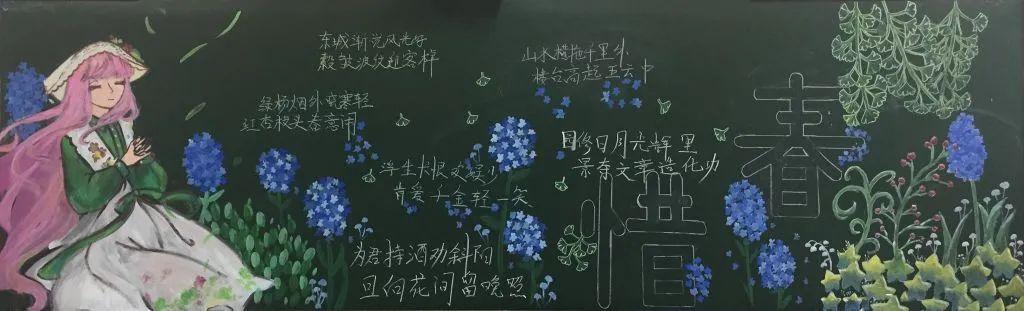 东城渐觉风光好
縠皱波纹迎客棹
绿杨烟外晓寒轻
红杏枝头春意闹
浮生长恨欢娱少
肯爱千金轻一笑
为君持酒劝斜阳
且向花间留晚照
山水横拖千里外
楼台高起五云中
园修日月光辉里
景夺文章造化功
惜春